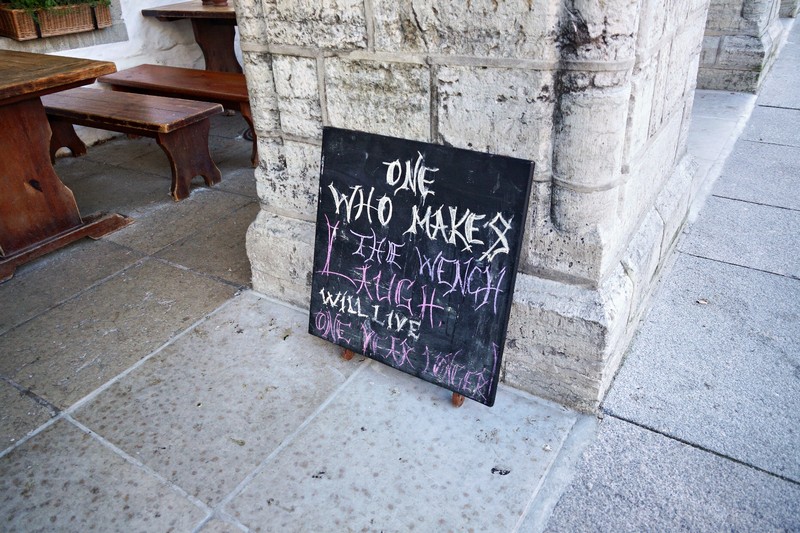 ONE
WHO MAKES
THE WENCH
LAUGH
WILL LIVE
ONE YEAR LONGER!